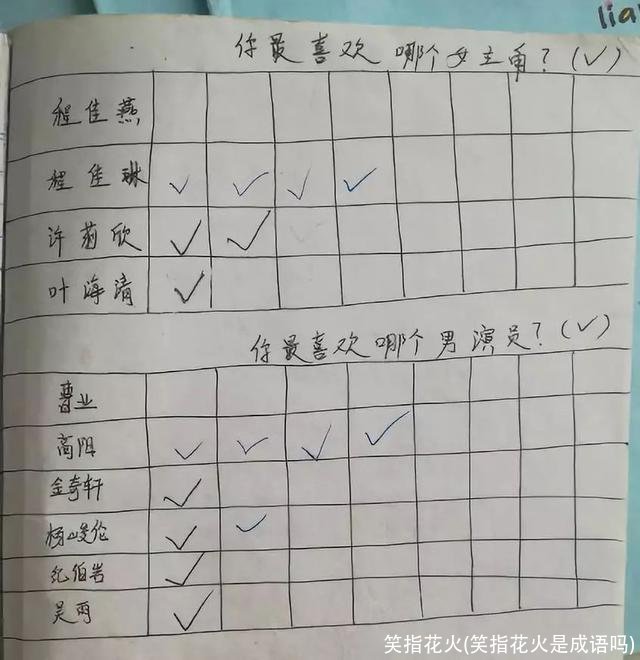 lia
你最喜欢哪个女主角?(✓)
程佳燕
程佳琳 ✓ ✓ ✓ ✓
许莉欣 ✓ ✓
叶海清 ✓
你最喜欢哪个男演员?(✓)
曹业
高阳 ✓ ✓ ✓ ✓
金奇轩 ✓
杨峻伦 ✓ ✓
纪伯岩 ✓
吴雨 ✓
笑指花火(笑指花火是成语吗)